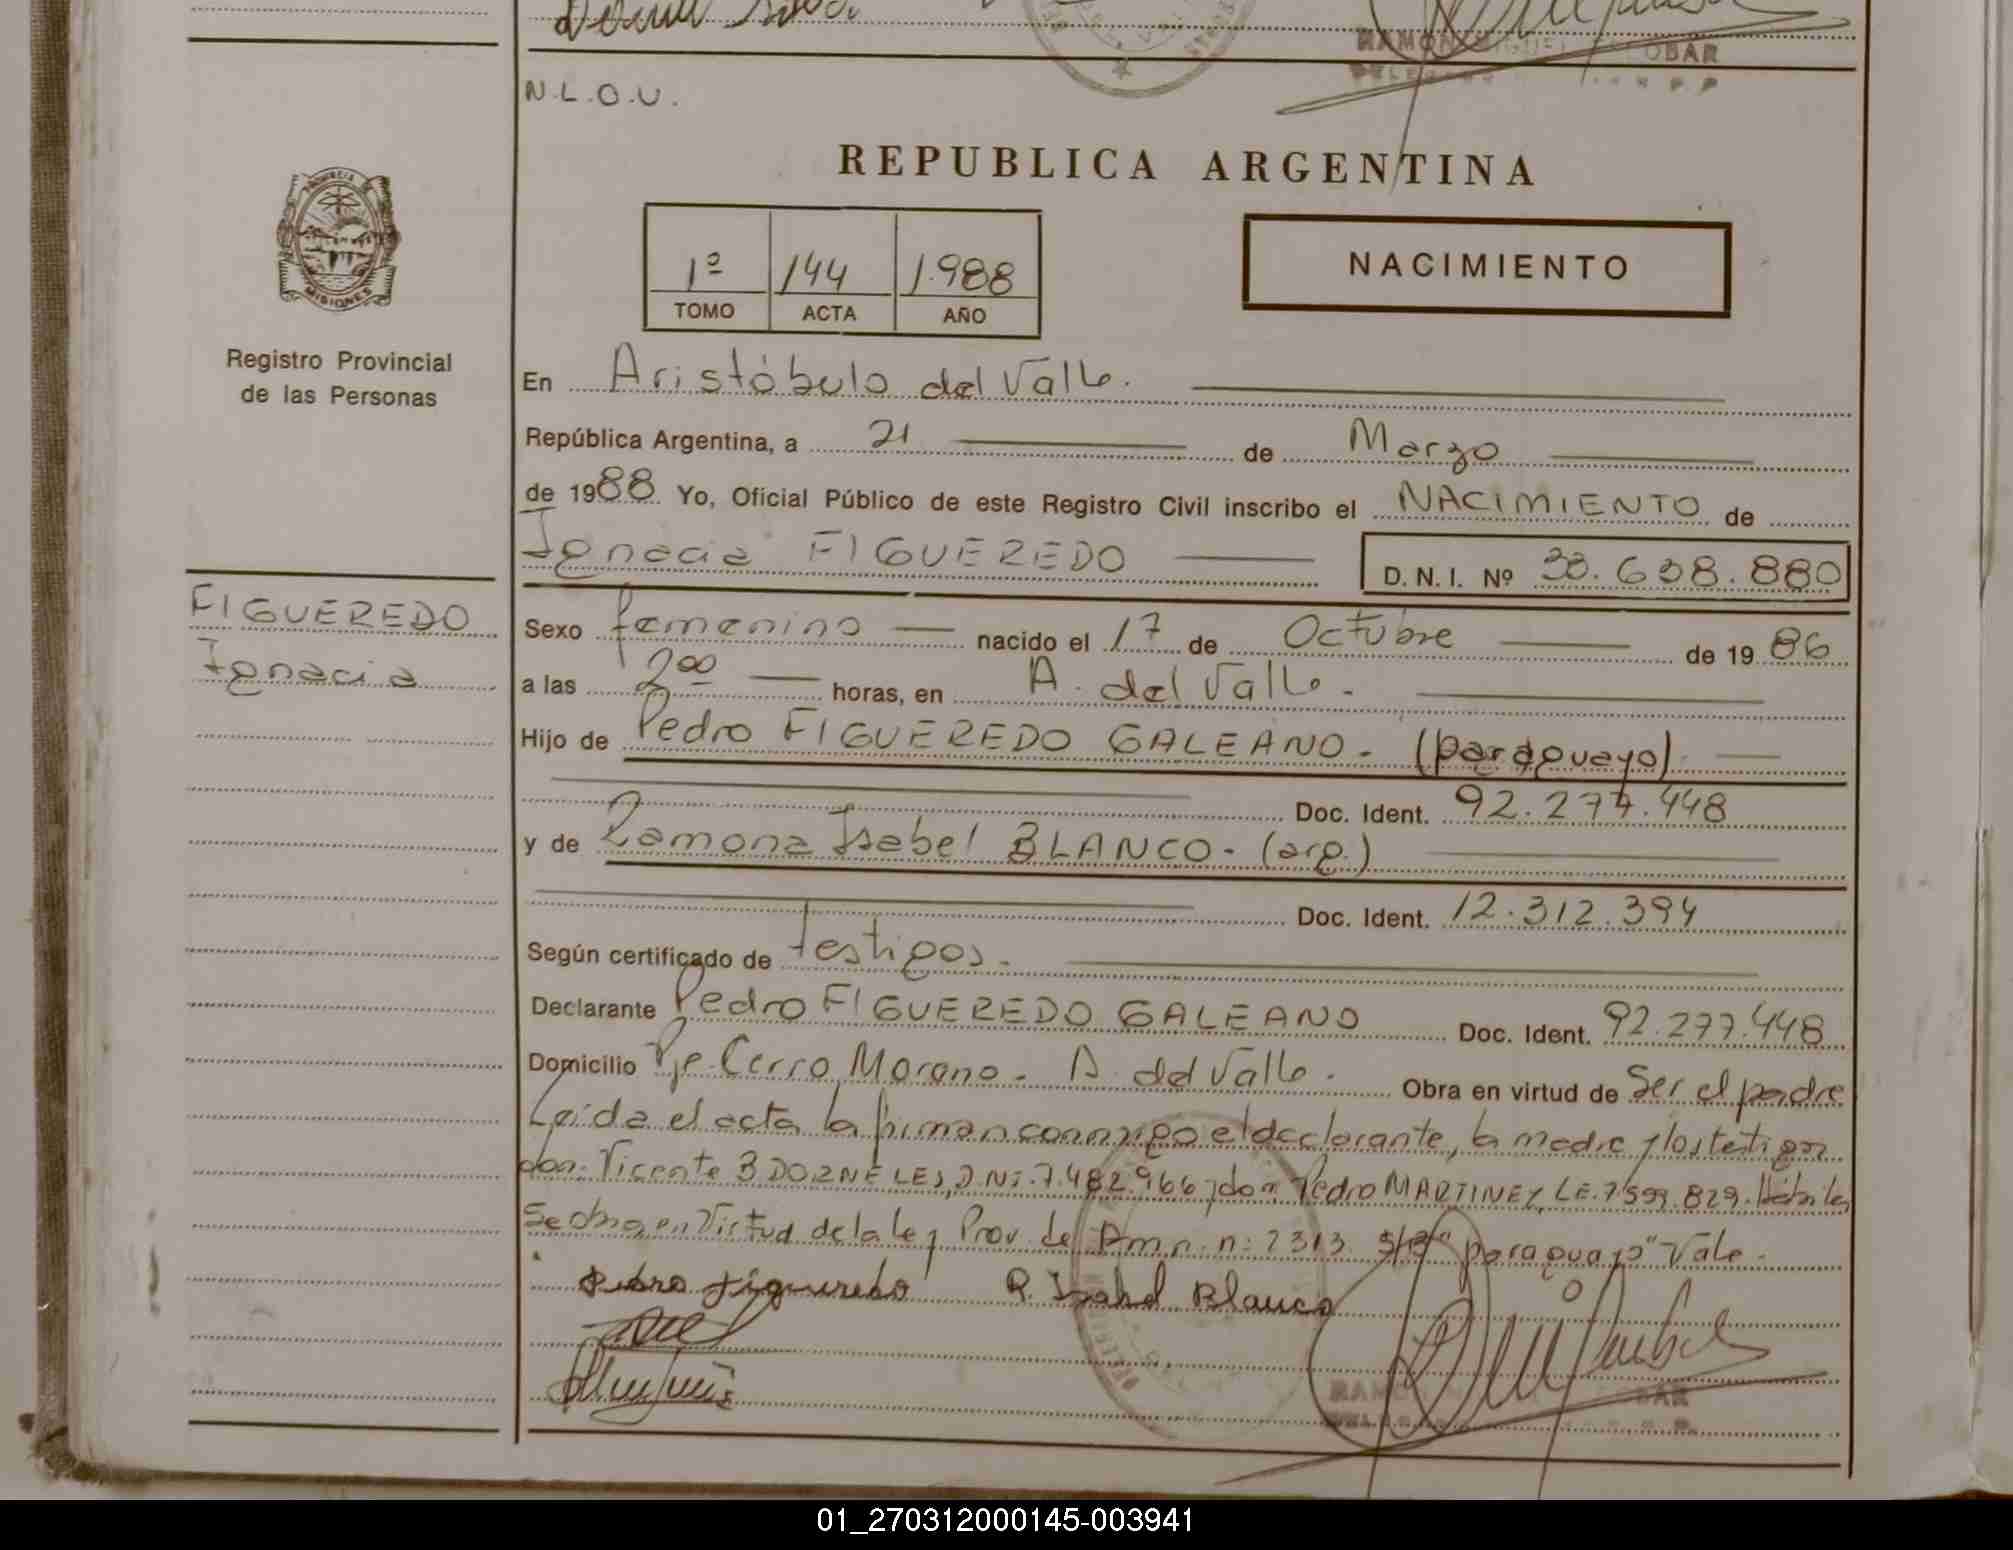 N.L.O.U.
REPUBLICA ARGENTINA
1º 144 1.988
TOMO ACTA AÑO
NACIMIENTO
PROVINCIA DE
MISIONES
Registro Provincial
de las Personas
En Aristóbulo del Valle.
República Argentina, a 21 de Marzo
de 1988 Yo, Oficial Público de este Registro Civil inscribo el NACIMIENTO de
Ignacia FIGUEREDO D. N. I. Nº 33.638.880
FIGUEREDO
Ignacia
Sexo femenino nacido el 17 de Octubre de 1986
a las 2⁰⁰ horas, en A. del Valle.
Hijo de Pedro FIGUEREDO GALEANO. (paraguayo)
Doc. Ident. 92.277.448
y de Ramona Isabel BLANCO. (arg.)
Doc. Ident. 12.312.394
Según certificado de testigos.
Declarante Pedro FIGUEREDO GALEANO Doc. Ident. 92.277.448
Domicilio Pje. Cerro Moreno. A. del Valle. Obra en virtud de Ser el padre
Leída el acta la firman conmigo el declarante, la madre y los testigos
don: Vicente B DORNELES, D.N.I. 7.482.966 y don Pedro MARTINEZ, L.E. 7.599.829. Hábiles
Se obra en Virtud de la ley Prov. de Amn. n: 2313. S/B "paraguayo" Vale.
Pedro Figueredo R. Isabel Blanco
01_270312000145-003941